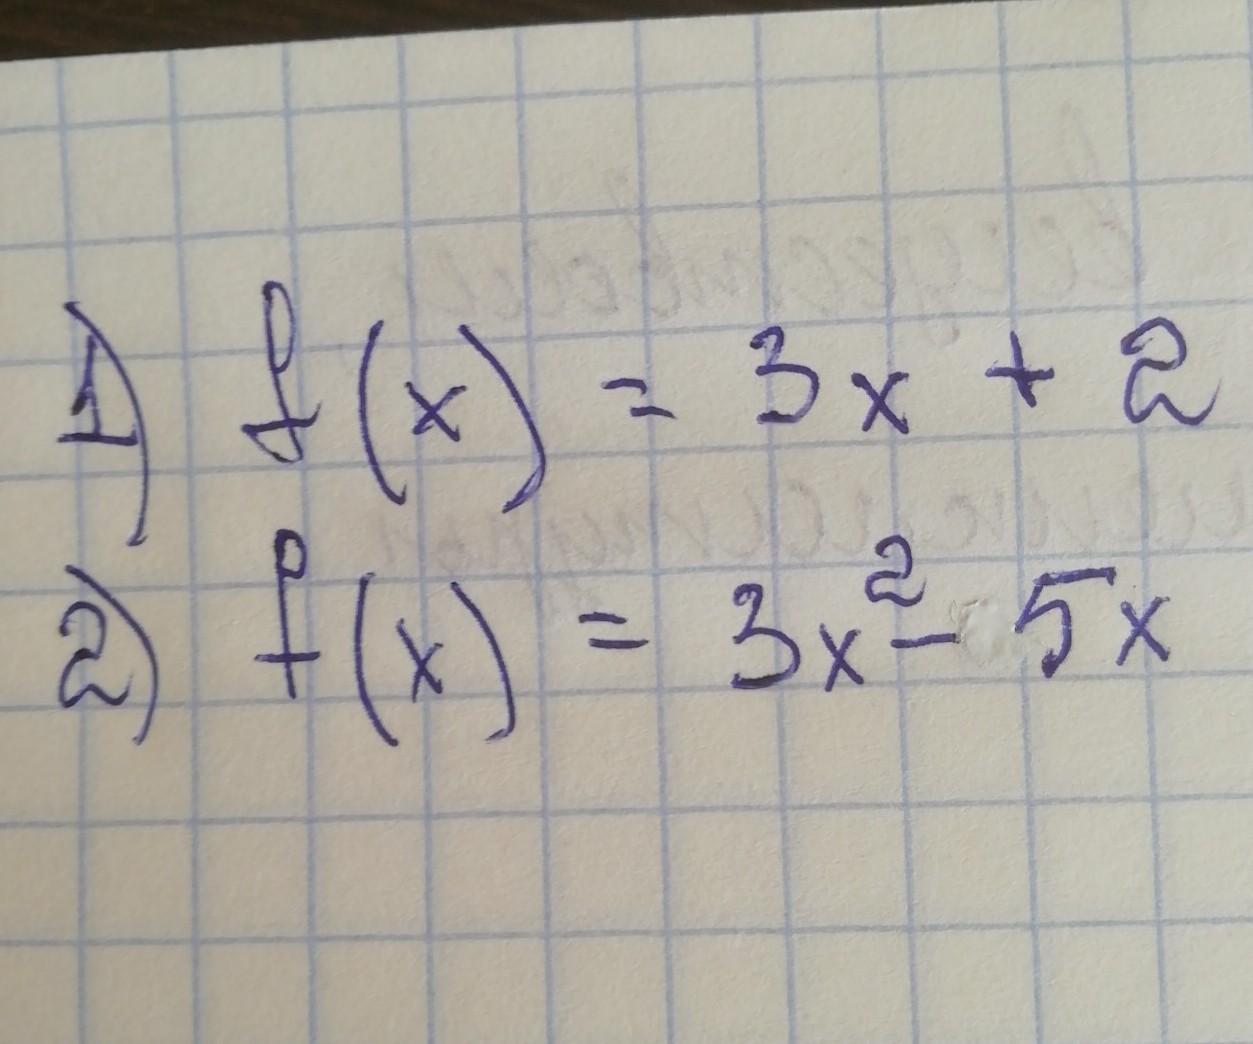 1) f(x) = 3x + 2
2) f(x) = 3x² - 5x